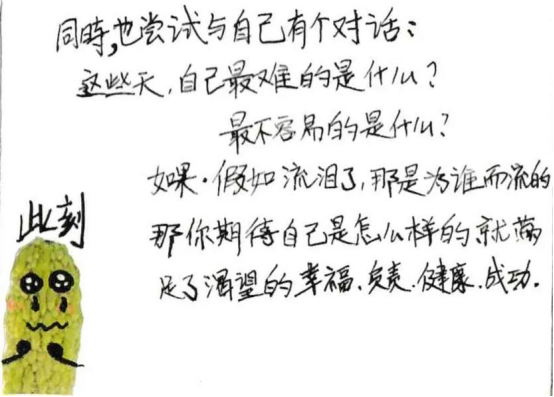 同时,也尝试与自己有个对话:
这些天,自己最难的是什么?
最不容易的是什么?
如果·假如流泪了,那是为谁而流的
此刻
那你期待自己是怎么样的就满
足了渴望的幸福、负责、健康、成功.